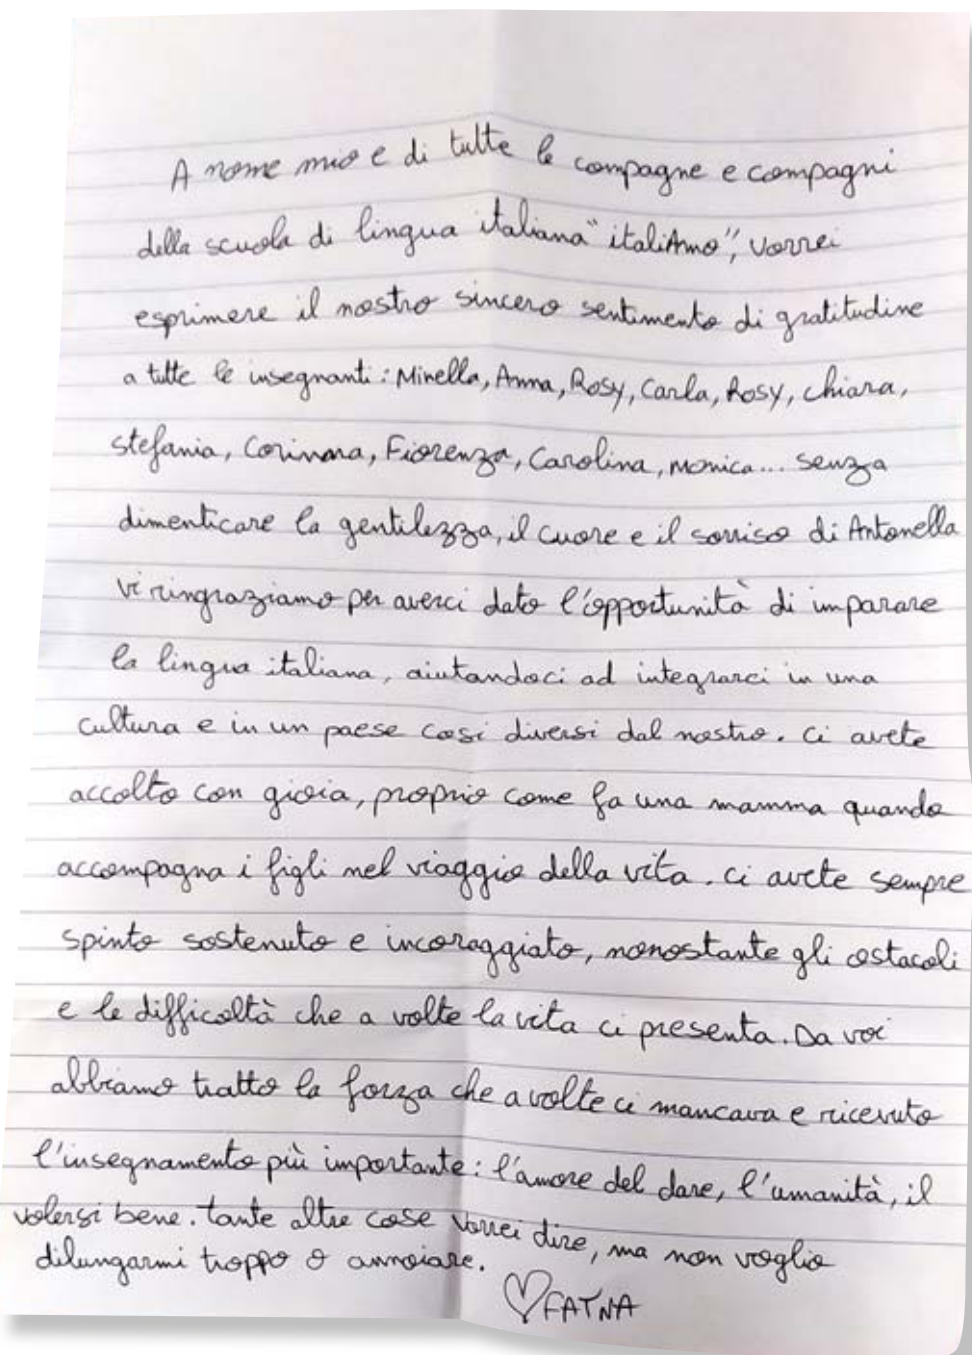 A nome mio e di tutte le compagne e compagni
della scuola di lingua italiana "italiAmo", vorrei
esprimere il nostro sincero sentimento di gratitudine
a tutte le insegnanti: Mirella, Anna, Rosy, Carla, Rosy, chiara,
stefania, Corinna, Fiorenza, Carolina, Monica... senza
dimenticare la gentilezza, il cuore e il sorriso di Antonella
vi ringraziamo per averci dato l'opportunità di imparare
la lingua italiana, aiutandoci ad integrarci in una
cultura e in un paese cosi diversi dal nostro. ci avete
accolto con gioia, proprio come fa una mamma quando
accompagna i figli nel viaggio della vita. ci avete sempre
spinto sostenuto e incoraggiato, nonostante gli ostacoli
e le difficoltà che a volte la vita ci presenta. Da voi
abbiamo tratto la forza che a volte ci mancava e ricevuto
l'insegnamento più importante: l'amore del dare, l'umanità, il
volersi bene. tante altre cose vorrei dire, ma non voglio
dilungarmi troppo o annoiare.
♡FATNA